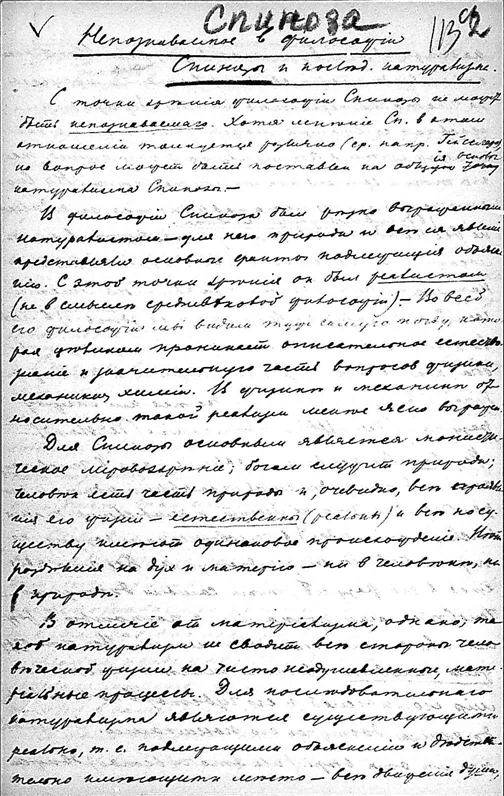 Спиноза
113 с2
Непознаваемое в философіи
Спинозы и послѣд. натурализм.
С точки зрѣнія философіи Спинозы не может
быть непознаваемого. Хотя мнѣніе Сп. в этом
отношеніи толкуется различно (ср. напр.
но вопрос может быть поставлен на общую
натурализма Спинозы —
В философіи Спиноза был рѣзко выраженным
натуралистом — для него природа и вся ея явленія
представляли основные факты подлежащія объясне-
нію. С этой точки зрѣнія он был реалистом
(не в смыслѣ средневѣковой философіи) — Во всей
его философіи мы видим ту же самую почву, кото-
рая цѣликом проникает описательное естество-
знаніе и значительную часть вопросов физики,
механики, химіи. В физикѣ и механикѣ от-
носительно такой реализм менѣе ясно выражен
Для Спинозы основным является монисти-
ческое міровоззрѣніе; богом служит природа;
человѣк есть часть природы и, очевидно, всѣ
его физіи — естественны (реальны) и всѣ по су-
ществу имѣют одинаковое происхожденіе. Нѣт
раздѣленія на дух и матерію — ни в человѣкѣ, ни
в природѣ.
В отличіе от матеріализма, однако, та-
кой натурализм не сводит всѣ стороны чело-
вѣческой физіи на чисто неодушевленные, мат-
ріальные процессы. Для послѣдовательнаго
натурализма являются существующими
реально, т. е. подлежащими объясненію и дѣйстви-
тельно имѣющими мѣсто — всѣ движенія души,